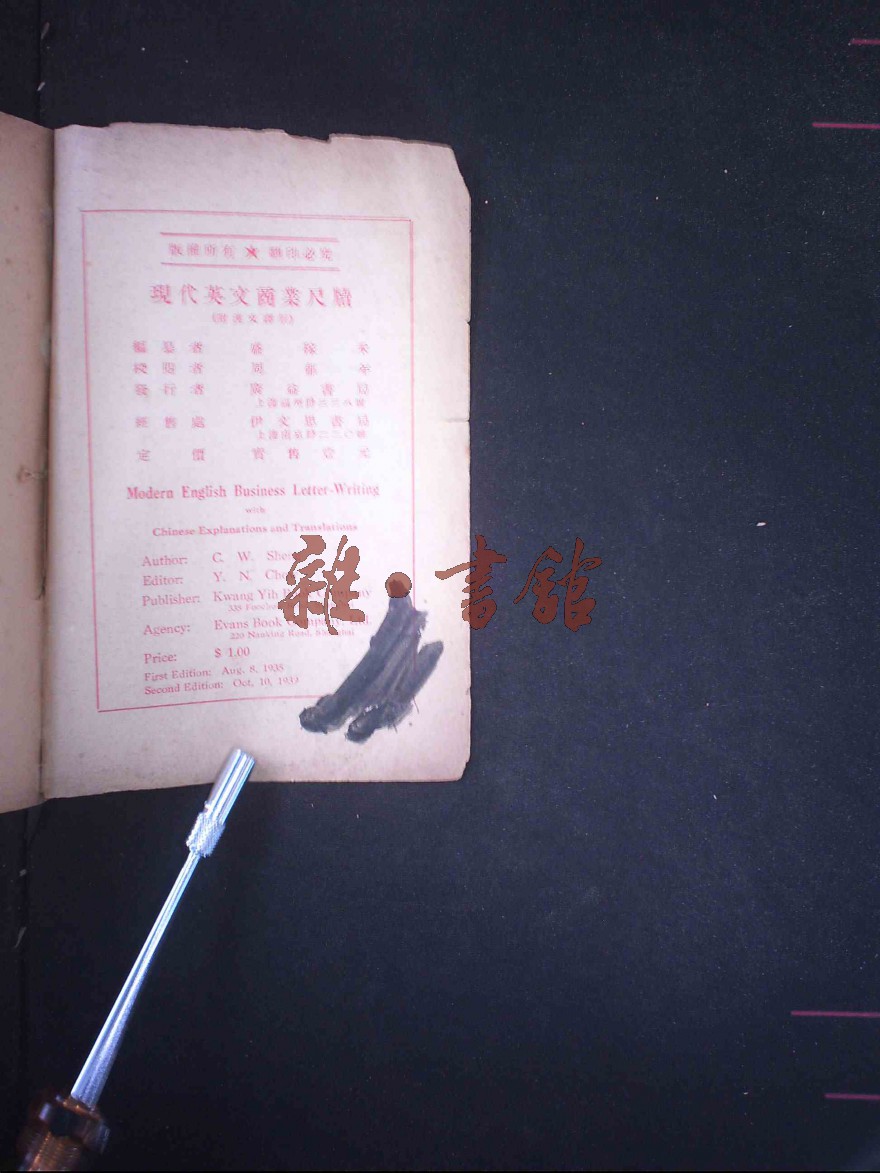 版權所有 ★ 翻印必究
現代英文商業尺牘
(附漢文譯註)
編纂者 盛稼
校閱者
發行者 廣益書局
上海福州路三三八號
經售處 伊文思書局
上海南京路二二〇號
定價 實售壹元
Modern English Business Letter-Writing
with
Chinese Explanations and Translations
Author: C. W.
Editor: Y. N.
Publisher: Kwang Yih Company
338
Agency: Evans Book Company, Ltd.
220 Nanking Road, Shanghai
Price: $ 1.00
First Edition: Aug. 8, 1935
Second Edition: Oct. 10, 1939
雜·書館